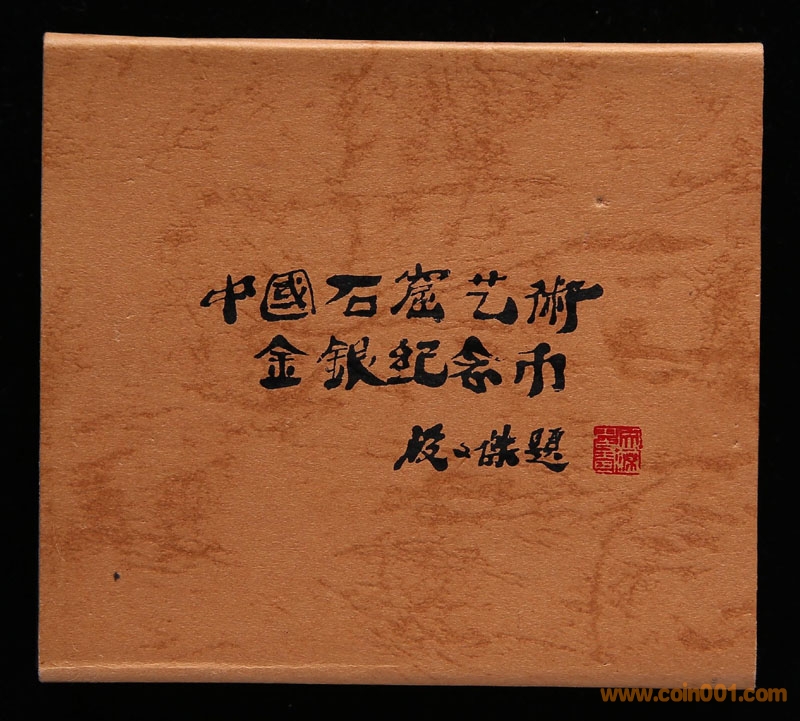 中國石窟艺術
金銀纪念币
段文傑題
www.coin001.com